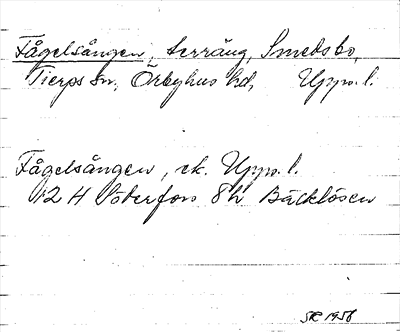 Fågelsången, terräng, Smedsbo,
Tierps sn, Örbyhus hd, Upps. l.
Fågelsången, ek. Upps. l.
12 H Söderfors 8h Bäcklösen
SK 1956